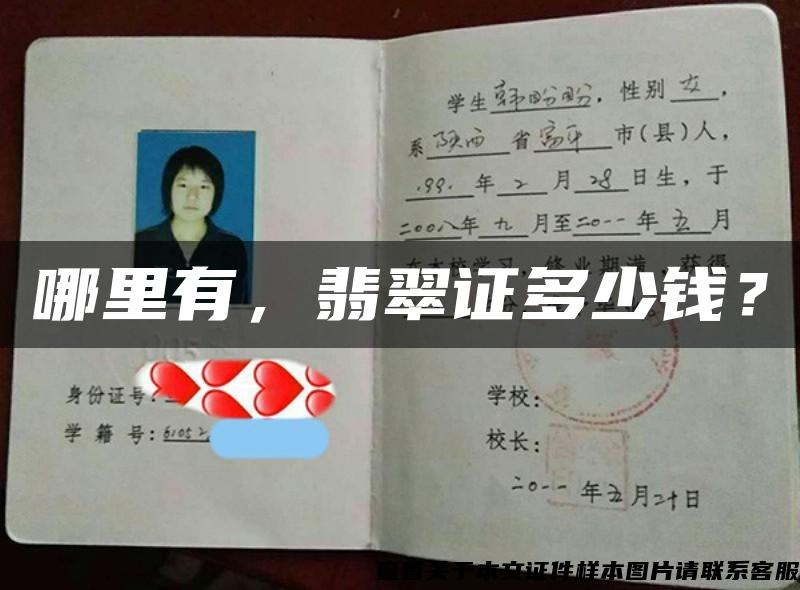 学生韩盼盼，性别女，
系陕西省富平市(县)人，
1991年2月28日生，于
二00八年九月至二0一一年五月
在本校学习，修业期满，获得
哪里有，翡翠证多少钱？
身份证号：
学籍号：61052
学校：
校长：
二0一一年五月二十日
查看关于本文证件样本图片请联系客服